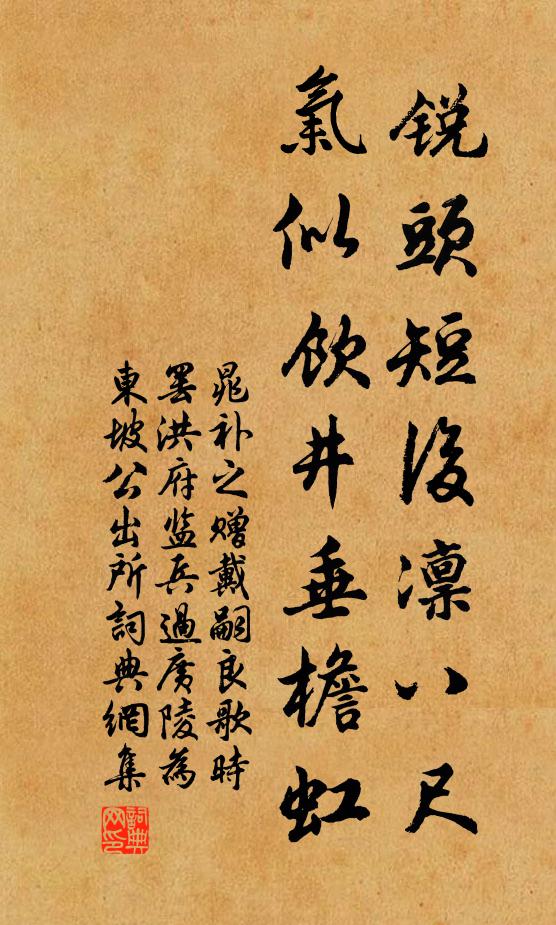 銳頭短後凛八尺
氣似飲井垂檐虹
晁补之赠戴嗣良歌時
罢洪府监兵過廣陵為
東坡公出所詞典網集
詞典网印